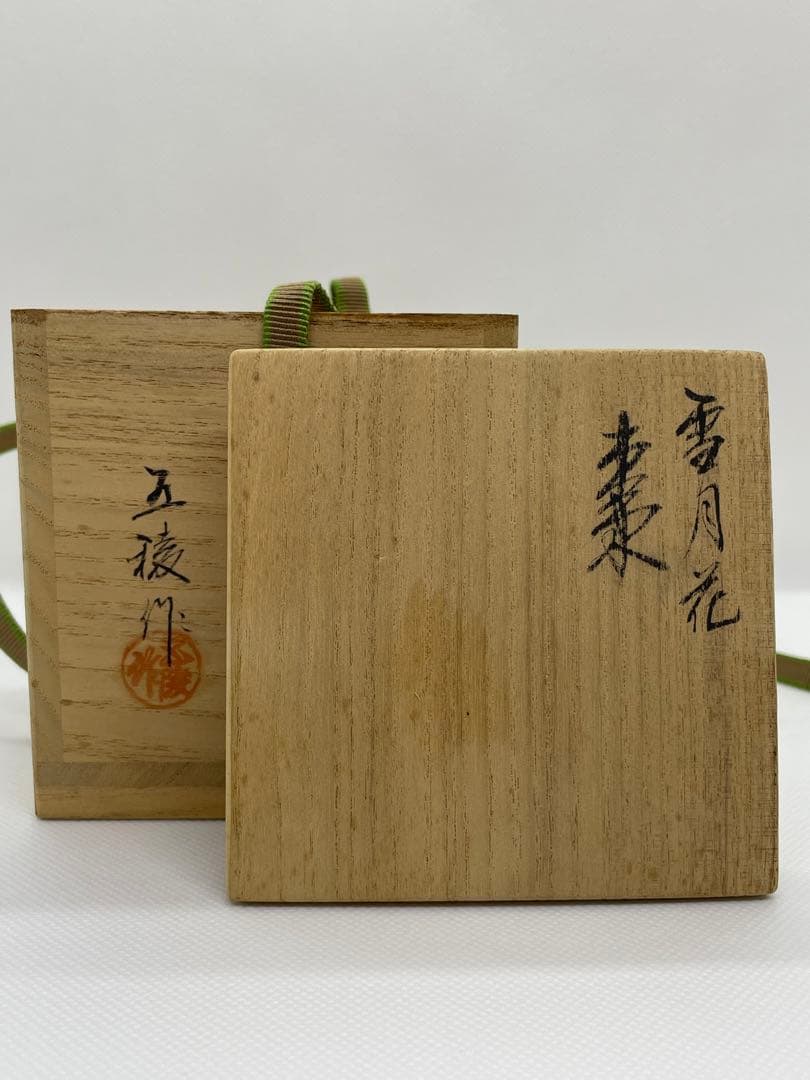 雪月花
棗
五稜作